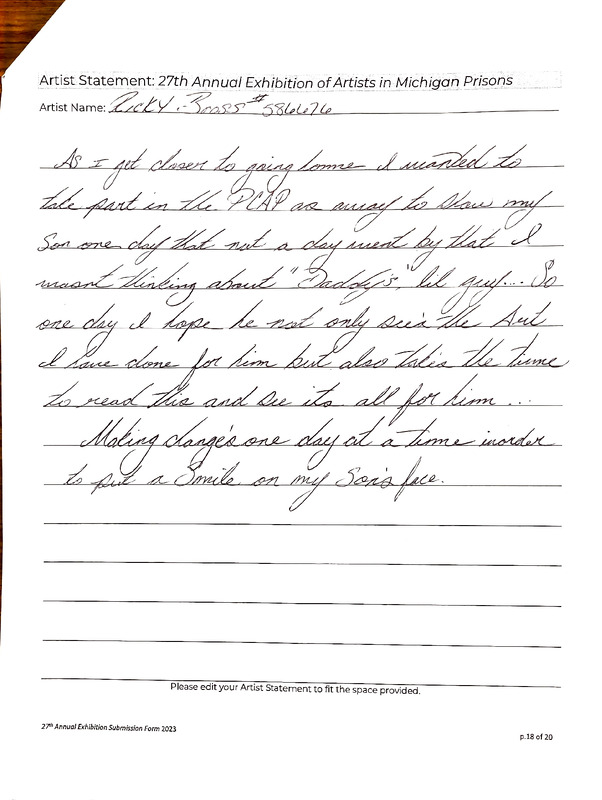 Artist Statement: 27th Annual Exhibition of Artists in Michigan Prisons
Artist Name: Ricky. Bross #586676
As I get closer to going home I wanted to
take part in the PCAP as away to show my
Son one day that not a day went by that I
wasnt thinking about "Daddy's" lil guy... So
one day I hope he not only see's the Art
I have done for him but also takes the time
to read this and see its all for him ...
Making change's one day at a time inorder
to put a Smile on my Son's face.
Please edit your Artist Statement to fit the space provided.
27th Annual Exhibition Submission Form 2023
p.18 of 20